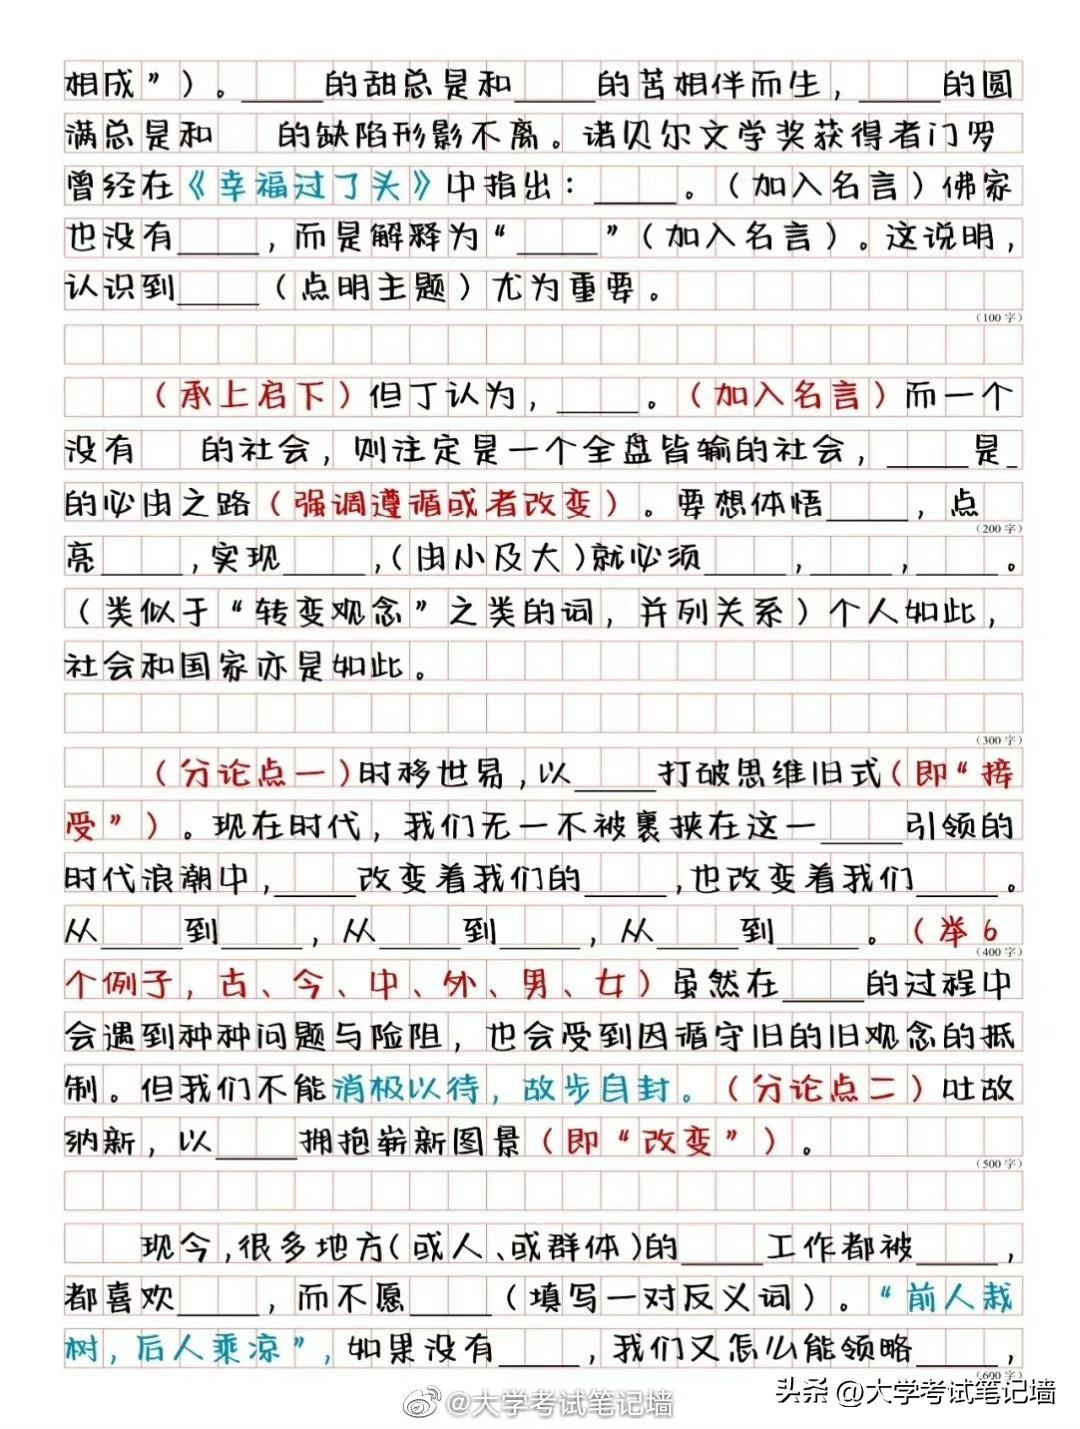 相成”）。____的甜总是和____的苦相伴而生，____的圆
满总是和 的缺陷形影不离。诺贝尔文学奖获得者门罗
曾经在《幸福过了头》中指出：____。（加入名言）佛家
也没有____，而是解释为“____”（加入名言）。这说明，
认识到____（点明主题）尤为重要。
（100字）
（承上启下）但丁认为，____。（加入名言）而一个
没有 的社会，则注定是一个全盘皆输的社会，____是_
的必由之路（强调遵循或者改变）。要想体悟____，点
（200字）
亮____,实现____,（由小及大）就必须____,____,____。
（类似于“转变观念”之类的词，并列关系）个人如此，
社会和国家亦是如此。
（300字）
（分论点一）时移世易,以____打破思维旧式（即“接
受”）。现在时代，我们无一不被裹挟在这一____引领的
时代浪潮中,____改变着我们的____,也改变着我们____。
从____到____，从____到____，从____到____。（举6
（400字）
个例子，古、今、中、外、男、女）虽然在____的过程中
会遇到种种问题与险阻，也会受到因循守旧的旧观念的抵
制。但我们不能消极以待，故步自封。（分论点二）吐故
纳新，以____拥抱崭新图景（即“改变”）。
（500字）
现今,很多地方（或人、或群体）的____工作都被____，
都喜欢____，而不愿____（填写一对反义词）。“前人栽
树，后人乘凉”，如果没有____，我们又怎么能领略____，
（600字）
@大学考试笔记墙
头条 @大学考试笔记墙